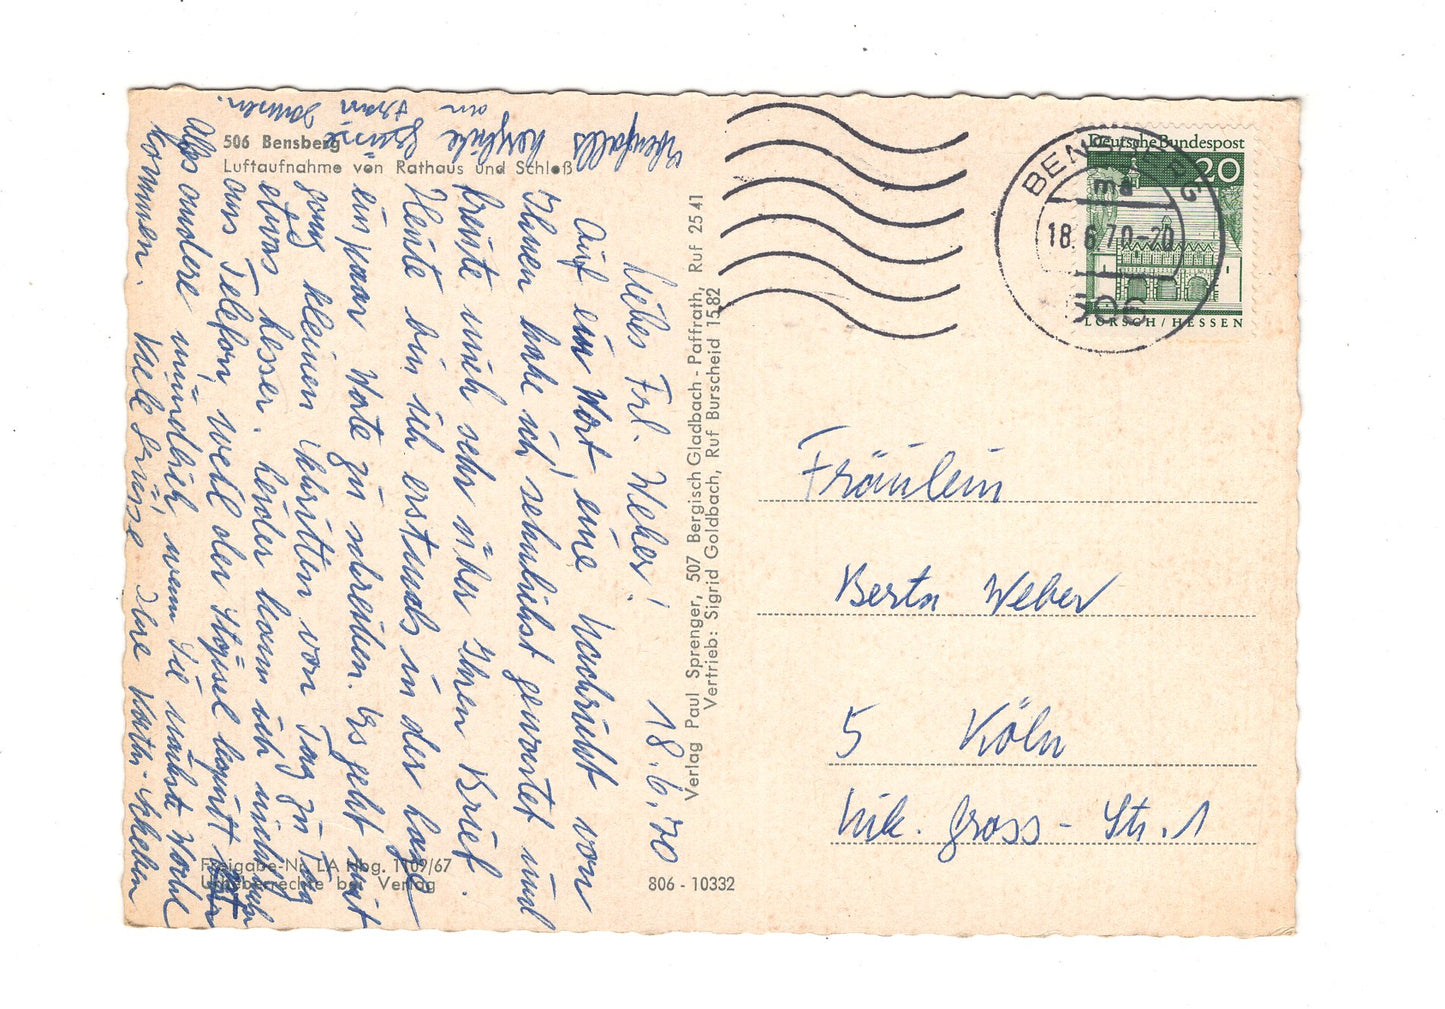 506 Bensberg
Luftaufnahme von Rathaus und Schloß
18.6.70
Liebes Frl. Weber!
Auf ein Wort, eine Nachricht von
Ihnen habe ich sehnlichst gewartet und
freute mich sehr über Ihren Brief.
Heute bin ich erstmals in der Lage
ein paar Worte zu schreiben. Es geht mit
ganz kleinen Schritten von Tag zu Tag
etwas besser. Leider kann ich nicht
ans Telefon, weil der Stöpsel kaputt ist
Alles andere mündlich, wenn Sie nächste Woche
kommen. Viele Grüsse Ihre
Ebenfalls herzliche Grüsse
an Frau
Freigabe-Nr. LA Hbg. 1109/67
Urheberrechte bei Verlag
806 - 10332
Verlag Paul Sprenger, 507 Bergisch Gladbach - Paffrath, Ruf 25 41
Vertrieb: Sigrid Goldbach, Ruf Burscheid 15 82
BENSBERG
ma
18.6.70-20
506
Deutsche Bundespost
20
LORSCH/HESSEN
Fräulein
Berta Weber
5 Köln
Nik. Gross-Str. 1